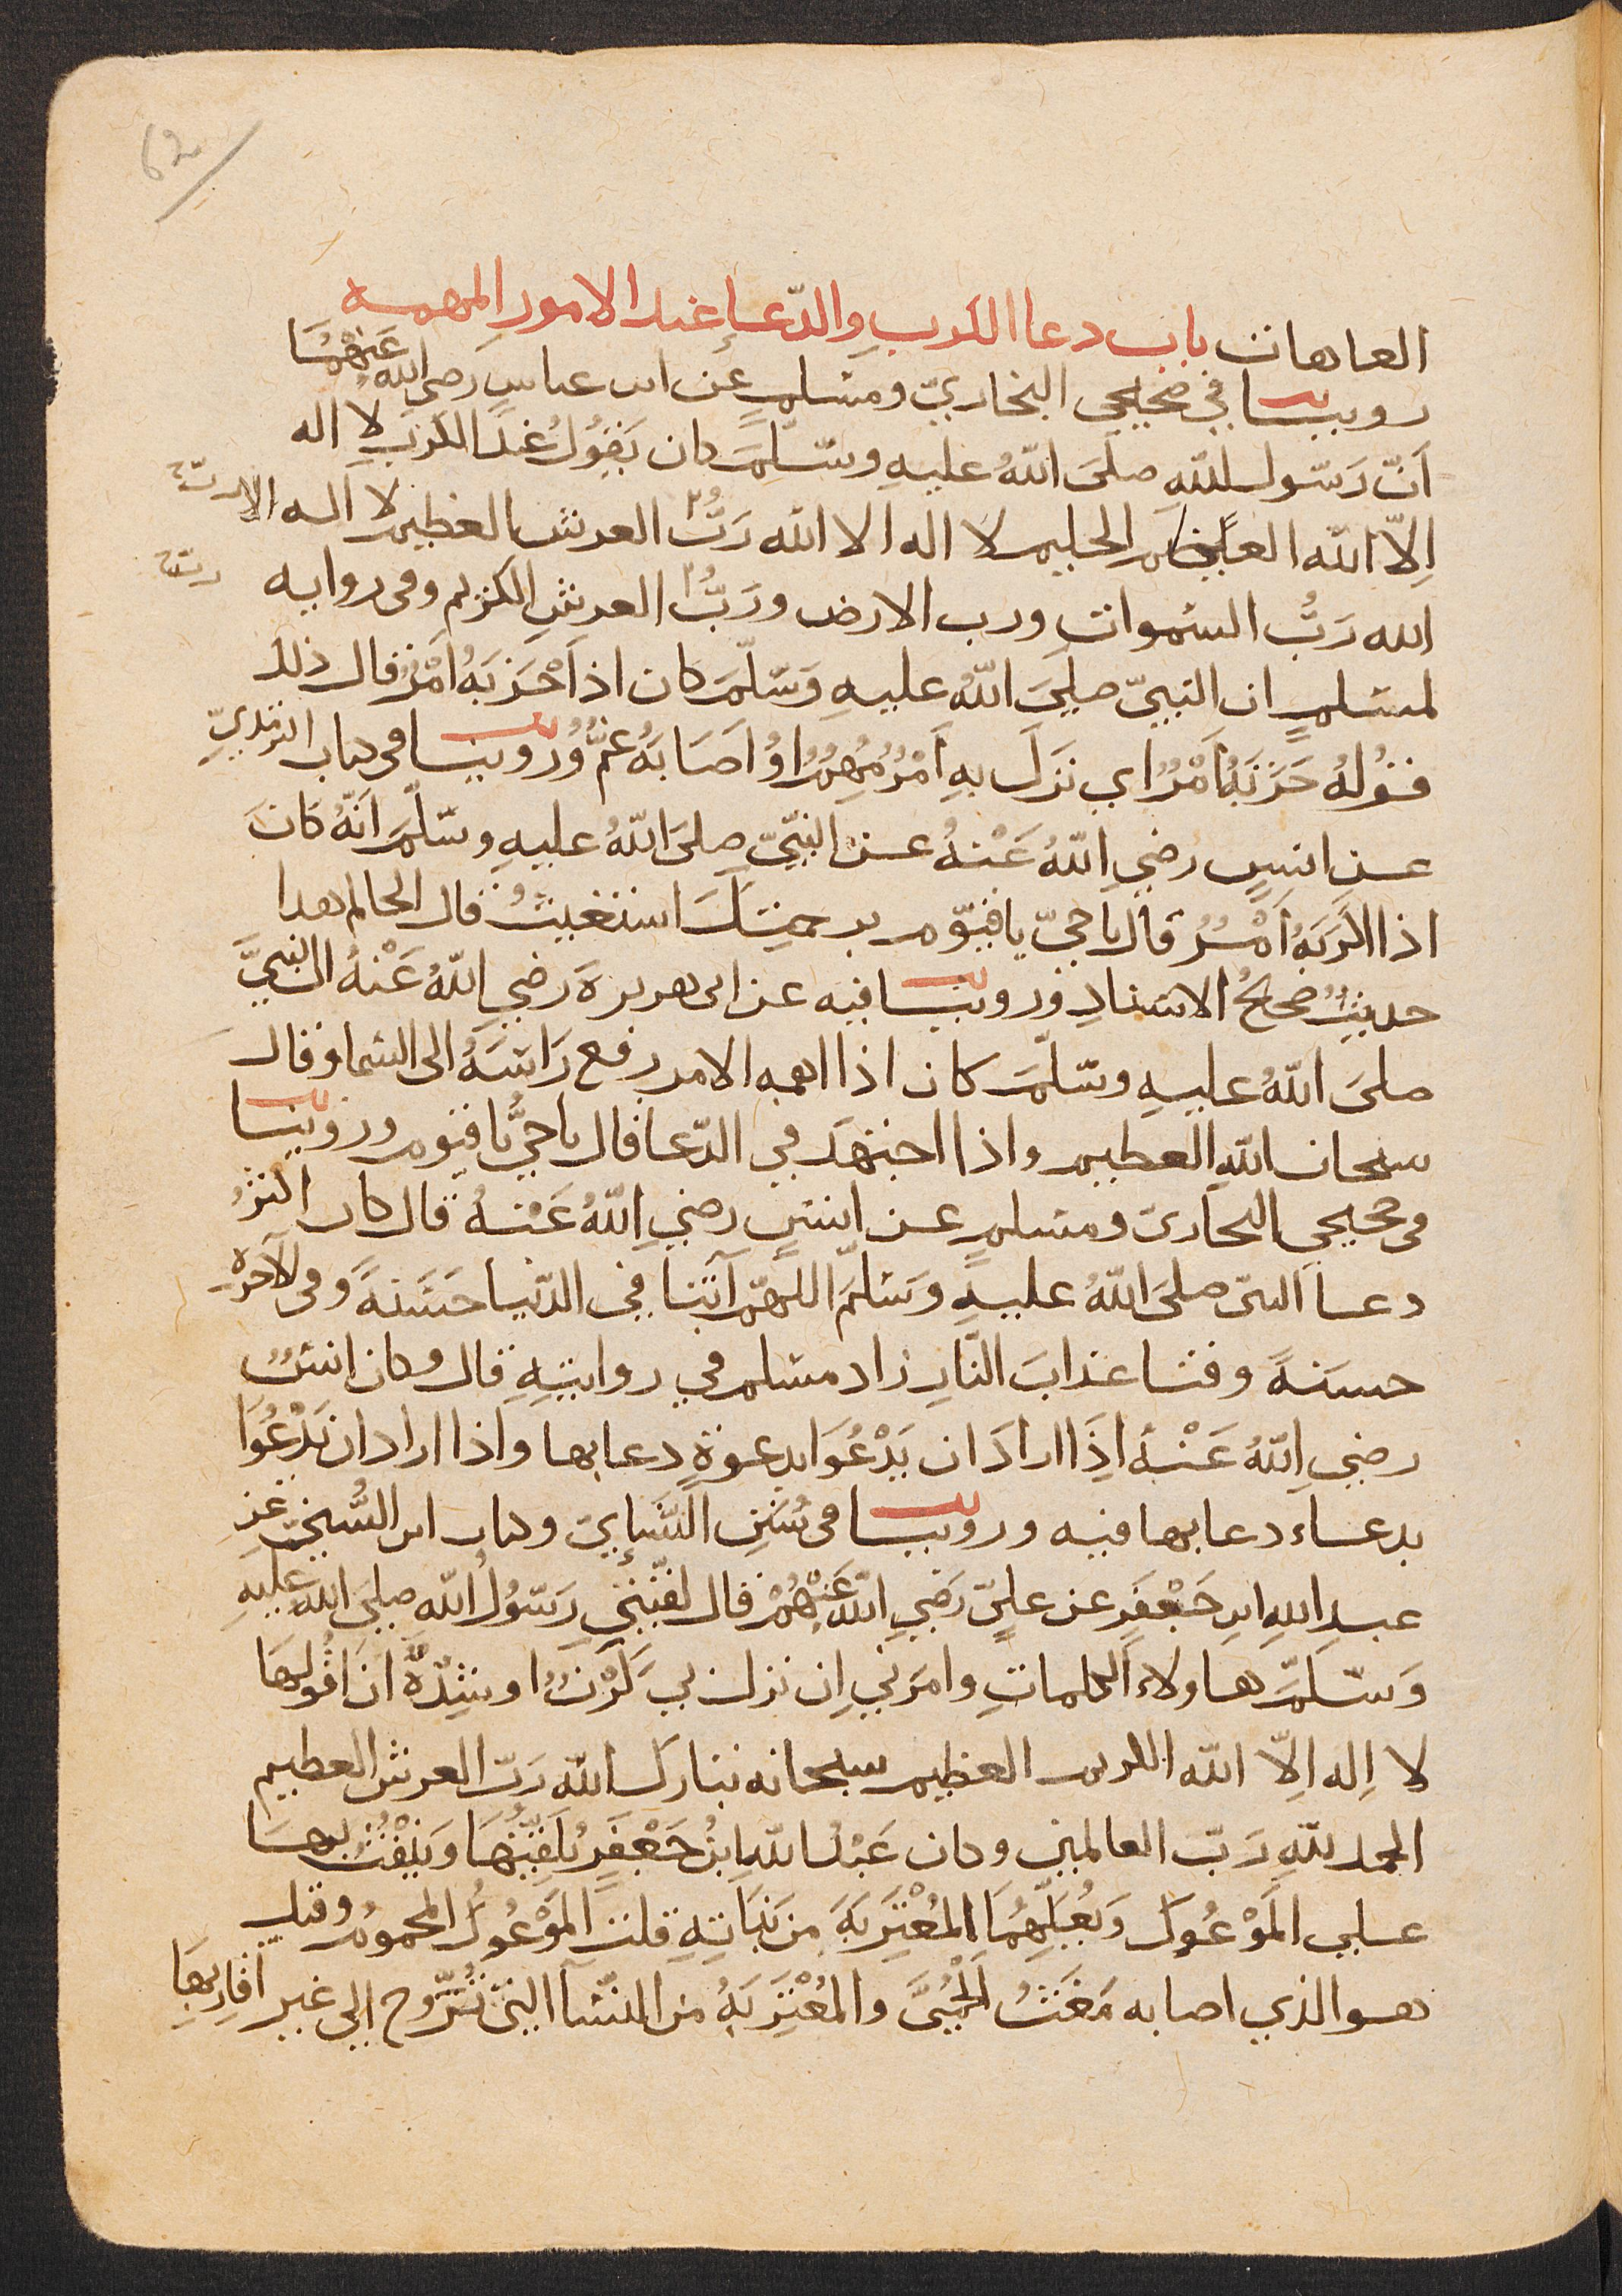 62
العاهات باب دعا الكرب والدّعاء عند الامور المهمه
روينا في صحيحي البخاريّ ومسلم عن ابن عباس رضي الله عنهما
انّ رسول الله صلى اللهُ عليهِ وسلّم كان يقول عند الكرب لا اله
اِلّا الله العظيم الحليم لا اله الا الله رَبُّ العرش العظيم لا اله الا
الله رَبُّ السموات ورب الارض ورَبُّ العرش الكريم وفي روايه
لمسلم ان النبيّ صلى اللهُ عليهِ وَسَلّمَ كان اذا حَزَبَهُ اَمْرٌ قال ذلك
قولهُ حَزَبَهُ اَمْرٌ اي نزَلَ بهِ اَمْرٌ مُهِمٌّ اَوْ اَصَابَهُ غمٌّ وروينا في كتاب الترمذيّ
عن انسٍ رضي اللهُ عَنْهُ عن النبيّ صلى اللهُ عليهِ وسلّم اَنّهُ كانَ
اذا اكربَهُ اَمْرٌ قال يا حيّ يا قيّوم برحمتِكَ استغيثُ قال الحاكم هذا
حديثٌ صحيحُ الاسنادِ وروينا فيه عن ابي هريرةَ رضي اللهُ عَنْهُ ان النبيَّ
صلى اللهُ عليهِ وسلّمَ كان اذا اهمه الامر رفع رَاسَهُ الى السما وقال
سبحان اللهِ العظيم واذا اجتهَدَ في الدّعا قال يا حيُّ يا قيوم وروينا
في صحيحي البخاري ومسلم عن انسٍ رضي اللهُ عَنْهُ قال كان اكثرُ
دعا النبيّ صلى اللهُ عليهِ وَسَلّمَ اللهمّ آتنا في الدّنيا حَسَنةً وفي الآخرة
حسنةً وقنا عذابَ النّارِ زاد مسلم في روايتِهِ قال وكان انسٌ
رضي اللهُ عَنْهُ اِذَا ارادَ ان يَدْعُوَا بدعوةٍ دعا بها واذا اراد ان يَدْعُوَا
بدعاءٍ دعا بها فيه وروينا في سُنَنِ النَّسَاييّ وكتاب ابن السُّنيّ عن
عبدِ اللهِ ابنِ جَعْفَرٍ عن عليٍّ رَضي الله عَنْهُمْ قال لقّنَنِي رَسُولُ اللهِ صلى الله عليهِ
وَسَلّمَ هاولاء الكلماتِ وامَرَني اِن نزل بي كَرْبٌ او شِدّةٌ اَنْ اَقُولَهَا
لا اِله اِلّا الله الكريم العظيم سبحانه تبارك الله رَبّ العرش العظيم
الحمد للهِ رَبّ العالمين وكان عَبْدُ اللهِ ابنُ جَعْفَرٍ يُلَقِّنُهَا وَيَنْفُثُ بها
على المَوْعُوكِ وَيُعَلِّمُهَا المُغْتَرِبَةَ من بَنَاتِهِ قلت المَوْعُوكُ المحمومُ وقيل
هو الذي اصابه مَغْثُ الحُمَّى والمُغْتَرِبَةُ من النّسآ التي تُزَوّج الى غير اقارِبِهَا